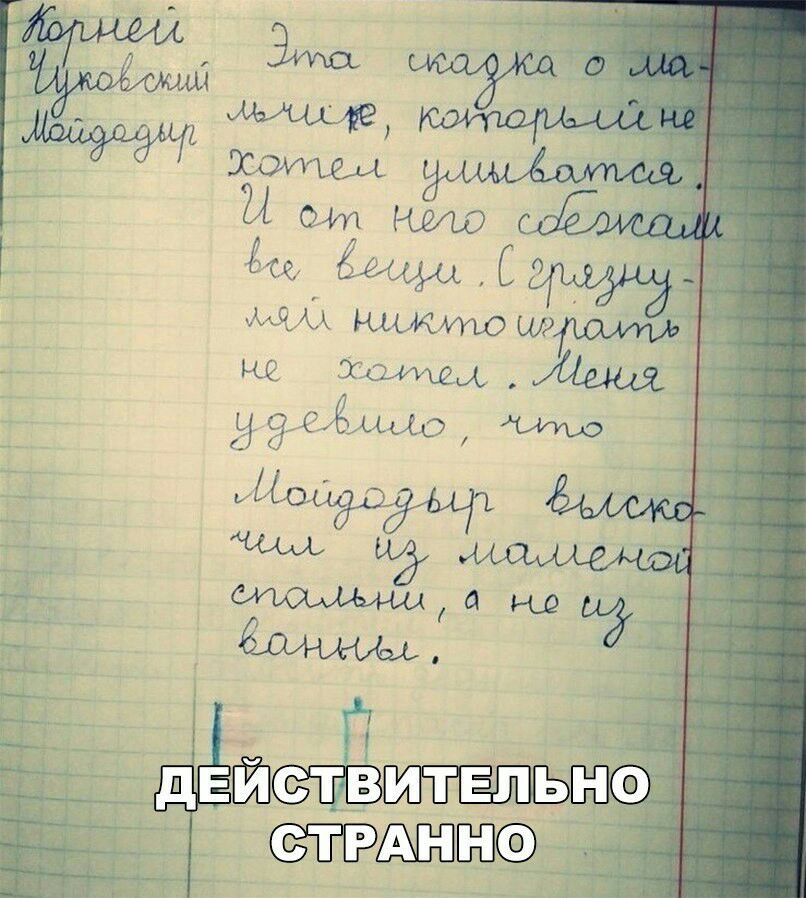 Корней
Чуковский
Мойдодыр
Эта сказка о ма-
льчике, который не
хотел умыватся.
И от него сбежали
все вещи. С грязну-
лей никто играть
не хотел. Меня
удевило, что
Мойдодыр выско-
чил из маменой
спальни, а не из
ванны.
ДЕЙСТВИТЕЛЬНО
СТРАННО